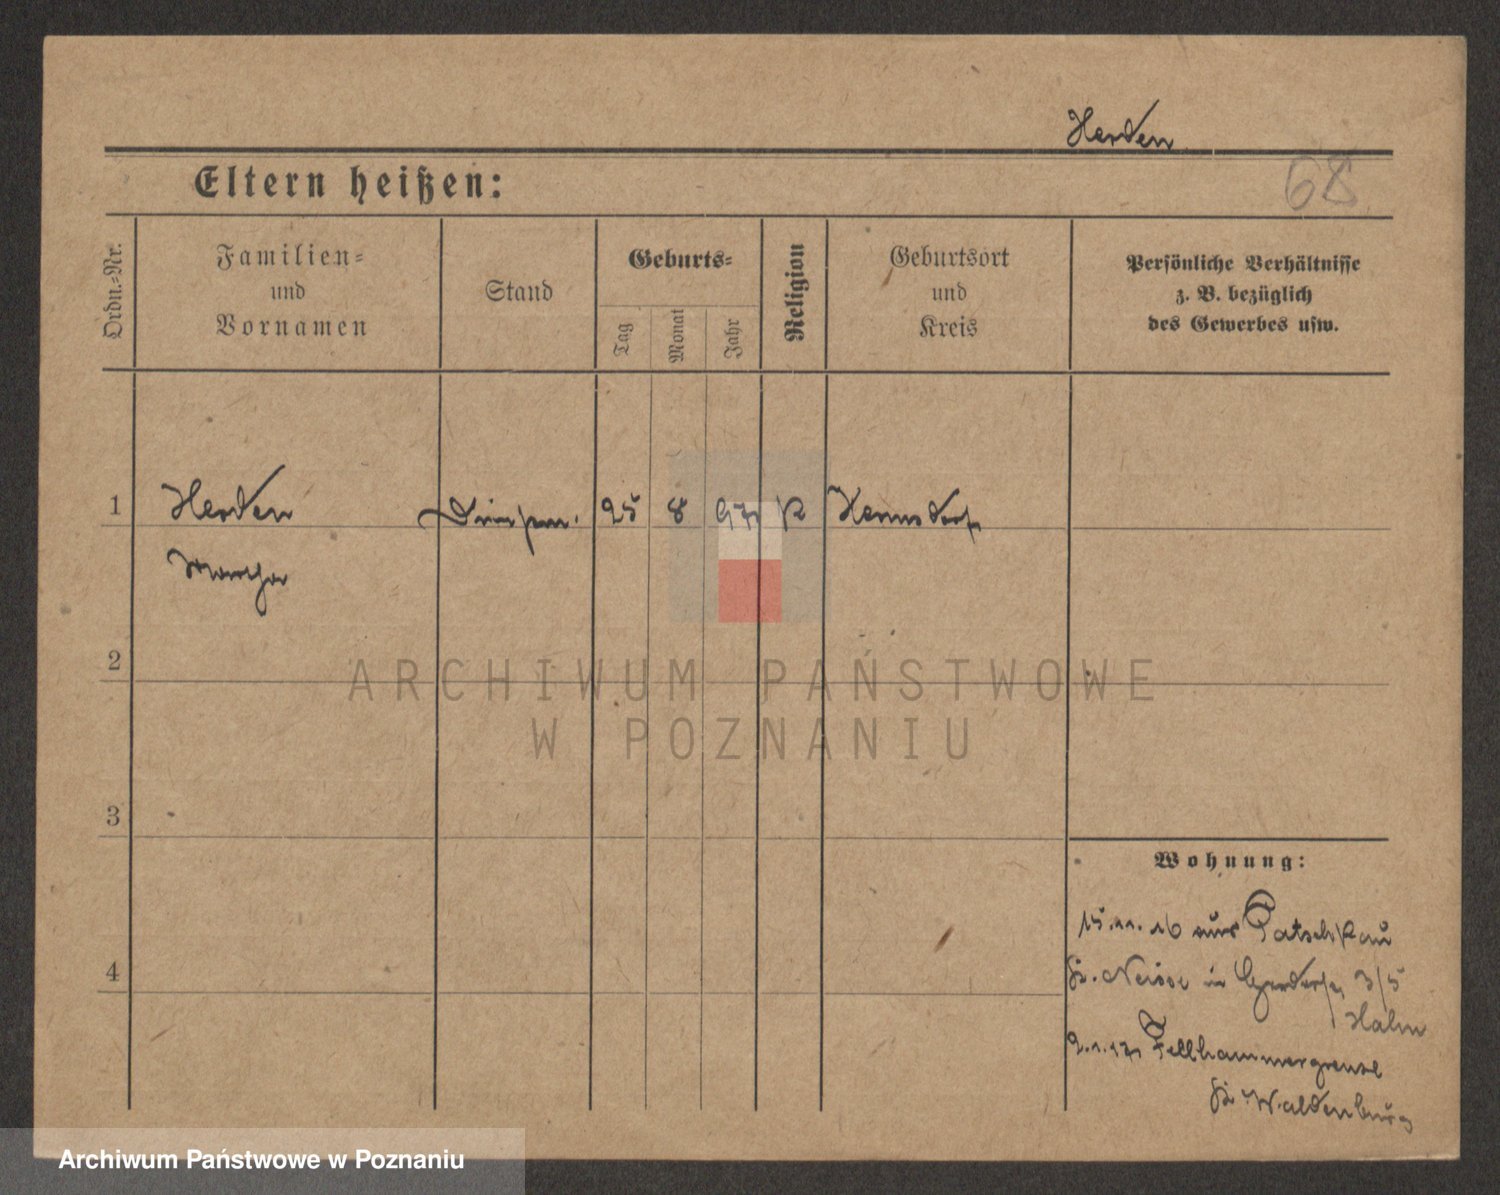 Herden
Eltern heißen:
68
Ordn.-Nr.
Familien-
und
Vornamen
Stand
Geburts-
Tag
Monat
Jahr
Religion
Geburtsort
und
Kreis
Persönliche Verhältnisse
z. B. bezüglich
des Gewerbes usw.
1 Herden 25 8 97 K Hermsdorf
Martha
2
ARCHIWUM PAŃSTWOWE
W POZNANIU
3
Wohnung:
15.11.16 aus Patschkau
4
Kr. Neisse in 3/5
Hahn
2.1.17 Fellhammergrenze
Kr. Waldenburg
Archiwum Państwowe w Poznaniu